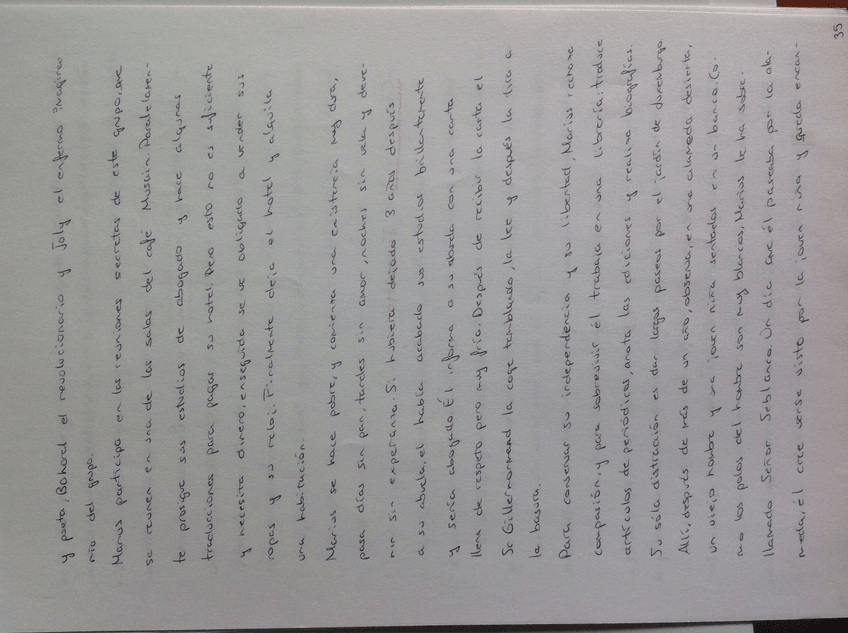 35
y poeta, Bahorel el revolucionario y Joly el enfermo imagina
rio del grupo.
Marius participa en las reuniones secretas de este grupo, que
se reunen en una de las salas del café Musain. Paralelamen-
te prosigue sus estudios de abogado y hace algunas
traducciones para pagar su hotel. Pero esto no es suficiente
y necesita dinero, enseguida se ve obligado a vender sus
ropas y su reloj. Finalmente deja el hotel y alquila
una habitación.
Marius se hace pobre, y comienza una existencia muy dura,
pasa días sin pan, tardes sin amor, noches sin vela y deve-
nir sin esperanza. Si hubiera dejado 3 años después
a su abuelo, el había acabado sus estudios brillantemente
y sería abogado. Él informa a su abuelo con una carta
llena de respeto pero muy fría. Después de recibir la carta el
Sr Gillermormand la coge temblando, la lee y después la tira a
la basura.
Para conservar su independencia y su libertad, Marius rechaza
compasión, y para sobrevivir él trabaja en una librería: traduce
artículos de periódicos, anota las ediciones y realiza biografías.
Su sóla distracción es dar largos paseos por el jardín de
Allí, después de más de un año, observa, en una alameda desierta,
un viejo hombre y una joven niña sentados en un banco. Co-
mo los pelos del hombre son muy blancos, Marius le ha sobre-
llamado Señor Seblanco. Un día que él paseaba por la ala-
meda, él cree verse visto por la joven niña y queda encan-